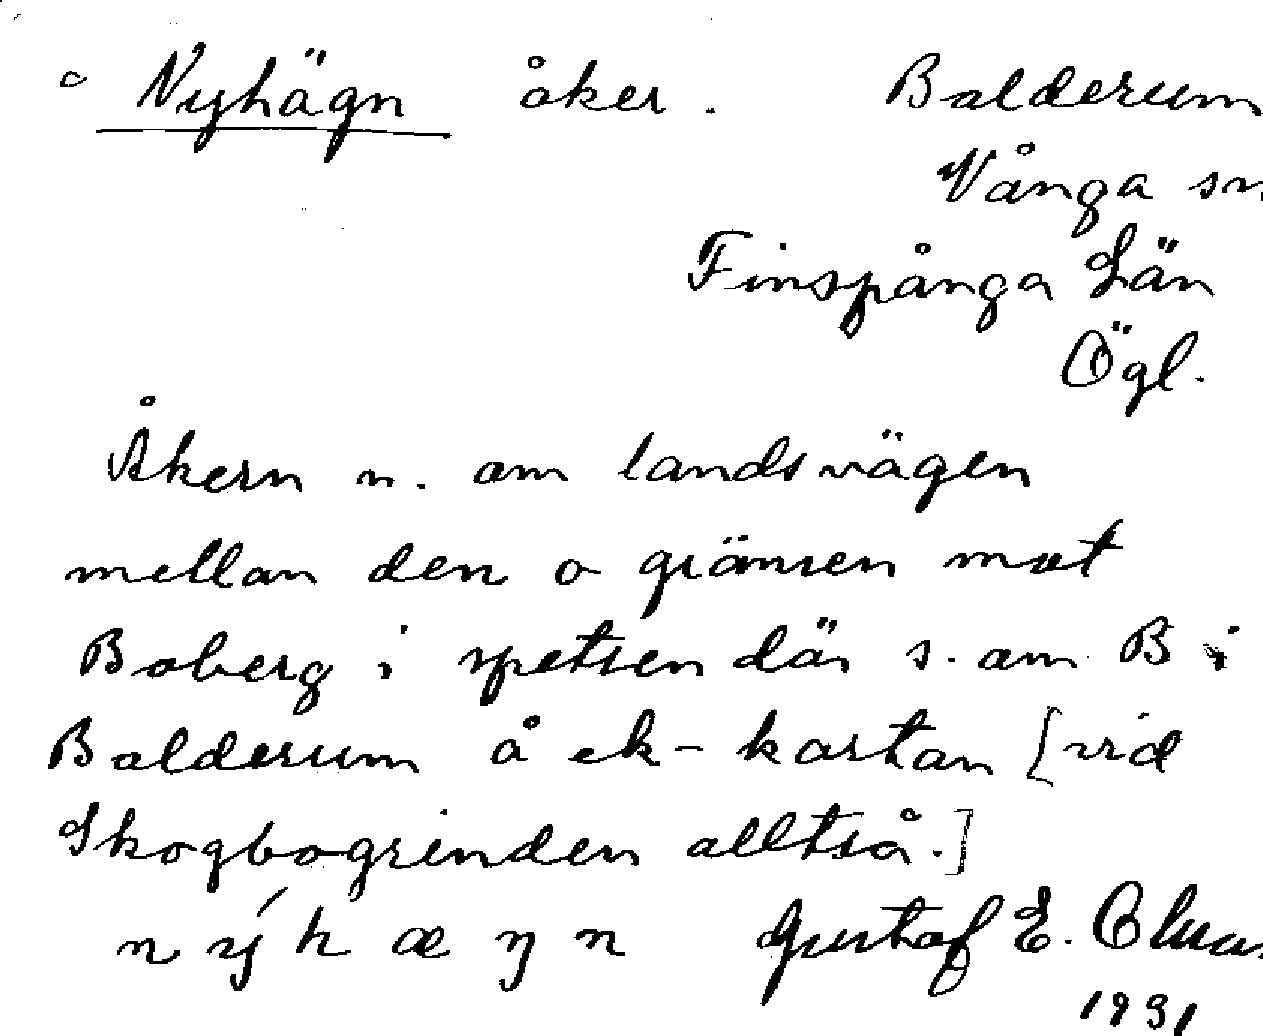 ° Nyhägn åker. Balderum
Vånga sn
Finspånga Län
Ögl.
Åkern n. om landsvägen
mellan den o gränsen mot
Boberg i spetsen där s. om B i
Balderum å ek-kartan [vid
Skogbogrinden alltså.]
nýhæŋn Gustaf E.
1931